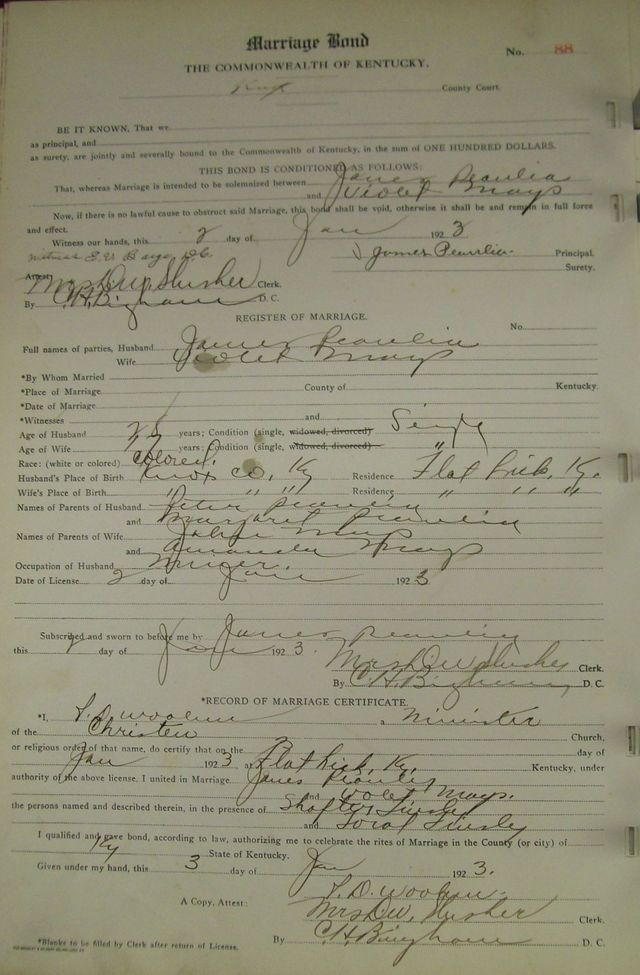 Marriage Bond
No. 88
THE COMMONWEALTH OF KENTUCKY.
Knox County Court.
BE IT KNOWN, That we
as principal, and
as surety, are jointly and severally bound to the Commonwealth of Kentucky, in the sum of ONE HUNDRED DOLLARS.
THIS BOND IS CONDITIONED AS FOLLOWS:
That, whereas Marriage is intended to be solemnized between James
and Violet Mays
Now, if there is no lawful cause to obstruct said Marriage, this bond shall be void, otherwise it shall be and remain in full force
and effect.
Witness our hands, this 2 day of Jan 1923
James Principal.
Surety.
Attest
Mrs D W Slusher Clerk.
By C. H. Bingham D. C.
REGISTER OF MARRIAGE.
No.
Full names of parties, Husband James
Wife Violet Mays
*By Whom Married
*Place of Marriage County of Kentucky.
*Date of Marriage
*Witnesses and
Age of Husband years; Condition (single, widowed, divorced) Single
Age of Wife years; Condition (single, widowed, divorced) "
Race: (white or colored) Colored.
Husband's Place of Birth Knox Co, Ky Residence Flat Lick, Ky.
Wife's Place of Birth " " " Residence " " "
Names of Parents of Husband Peter
and Margaret
Names of Parents of Wife Mays
and Amanda Mays
Occupation of Husband Miner.
Date of License 2 day of Jan 1923
Subscribed and sworn to before me by James
this 2 day of Jan 1923.
Mrs D W Slusher Clerk.
By C. H. Bingham D. C.
*RECORD OF MARRIAGE CERTIFICATE.
*I, , Minister
of the Church,
or religious order of that name, do certify that on the 3 day of
Jan 1923 at Flat Lick, Ky. Kentucky, under
authority of the above license, I united in Marriage James
and Violet Mays.
the persons named and described therein, in the presence of
and
I qualified and gave bond, according to law, authorizing me to celebrate the rites of Marriage in the County (or city) of
Ky State of Kentucky.
Given under my hand, this 3 day of Jan 1923.
A Copy, Attest:
Mrs D W. Slusher Clerk.
By C. H. Bingham D. C.
*Blanks to be filled by Clerk after return of License.